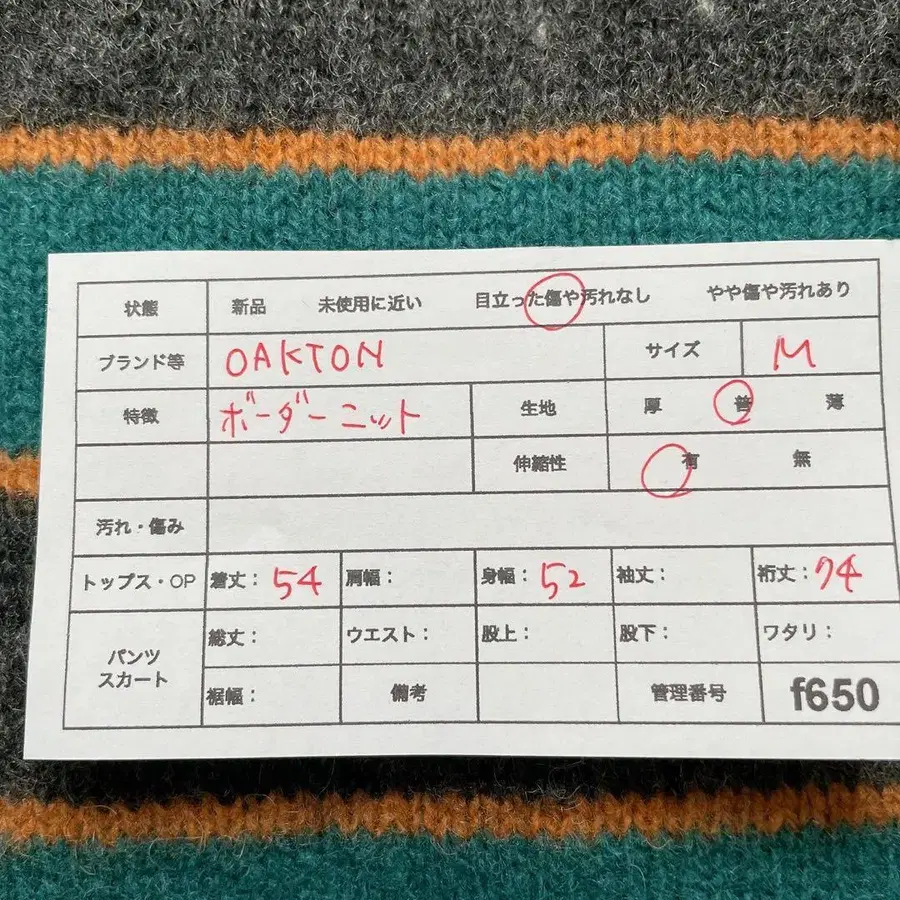 状態 新品 未使用に近い 目立った傷や汚れなし やや傷や汚れあり
ブランド等 OAKTON サイズ M
特徴 ボーダーニット 生地 厚 普 薄
伸縮性 有 無
汚れ・傷み
トップス・OP 着丈: 54 肩幅: 身幅: 52 袖丈: 裄丈: 74
パンツ スカート 総丈: ウエスト: 股上: 股下: ワタリ:
裾幅: 備考 管理番号 f650